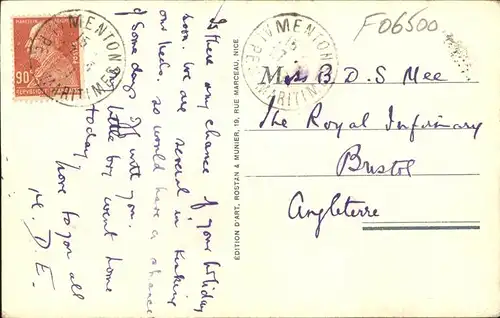 MARCELIN BERTHELOT
POSTES
90c
REPUBLIQUE FRANÇAISE
MENTON
ALPES MARITIMES
MENTON
ALPES MARITIMES
F06500
Is there any chance of your holiday
soon. We are several in
our beds. so would have a chance
of some days with you.
little boy went home
today.
Love to you all
M. D. E.
EDITION D'ART, ROSTAN & MUNIER, 19, RUE MARCEAU, NICE
Miss B. D. S Mee
The Royal Infirmary
Bristol
Angleterre